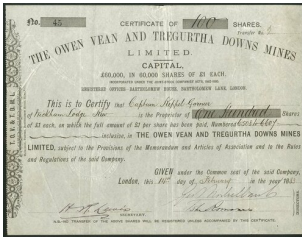 No. 45 CERTIFICATE OF 100 SHARES.
Transfer No.
THE OWEN VEAN AND TREGURTHA DOWNS MINES
LIMITED.
CAPITAL,
£60,000, IN 60,000 SHARES OF £1 EACH.
REGISTERED OFFICE: BARTHOLOMEW HOUSE, BARTHOLOMEW LANE, LONDON.
This is to Certify that Captain
of Lodge is the Proprietor of One Hundred Shares
of £1 each, on which the full amount of £1 per share has been paid, Numbered
inclusive, in THE OWEN VEAN AND TREGURTHA DOWNS MINES
LIMITED, subject to the Provisions of the Memorandum and Articles of Association and to the Rules
and Regulations of the said Company.
GIVEN under the Common Seal of the said Company,
London, this 14th day of February in the year 188
SECRETARY.
N.B.—NO TRANSFER OF THE ABOVE SHARES WILL BE REGISTERED UNLESS ACCOMPANIED BY THIS CERTIFICATE.